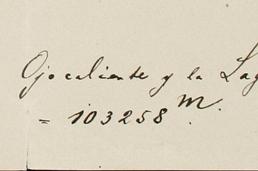 Ojocaliente y la Lag
= 103258 m.